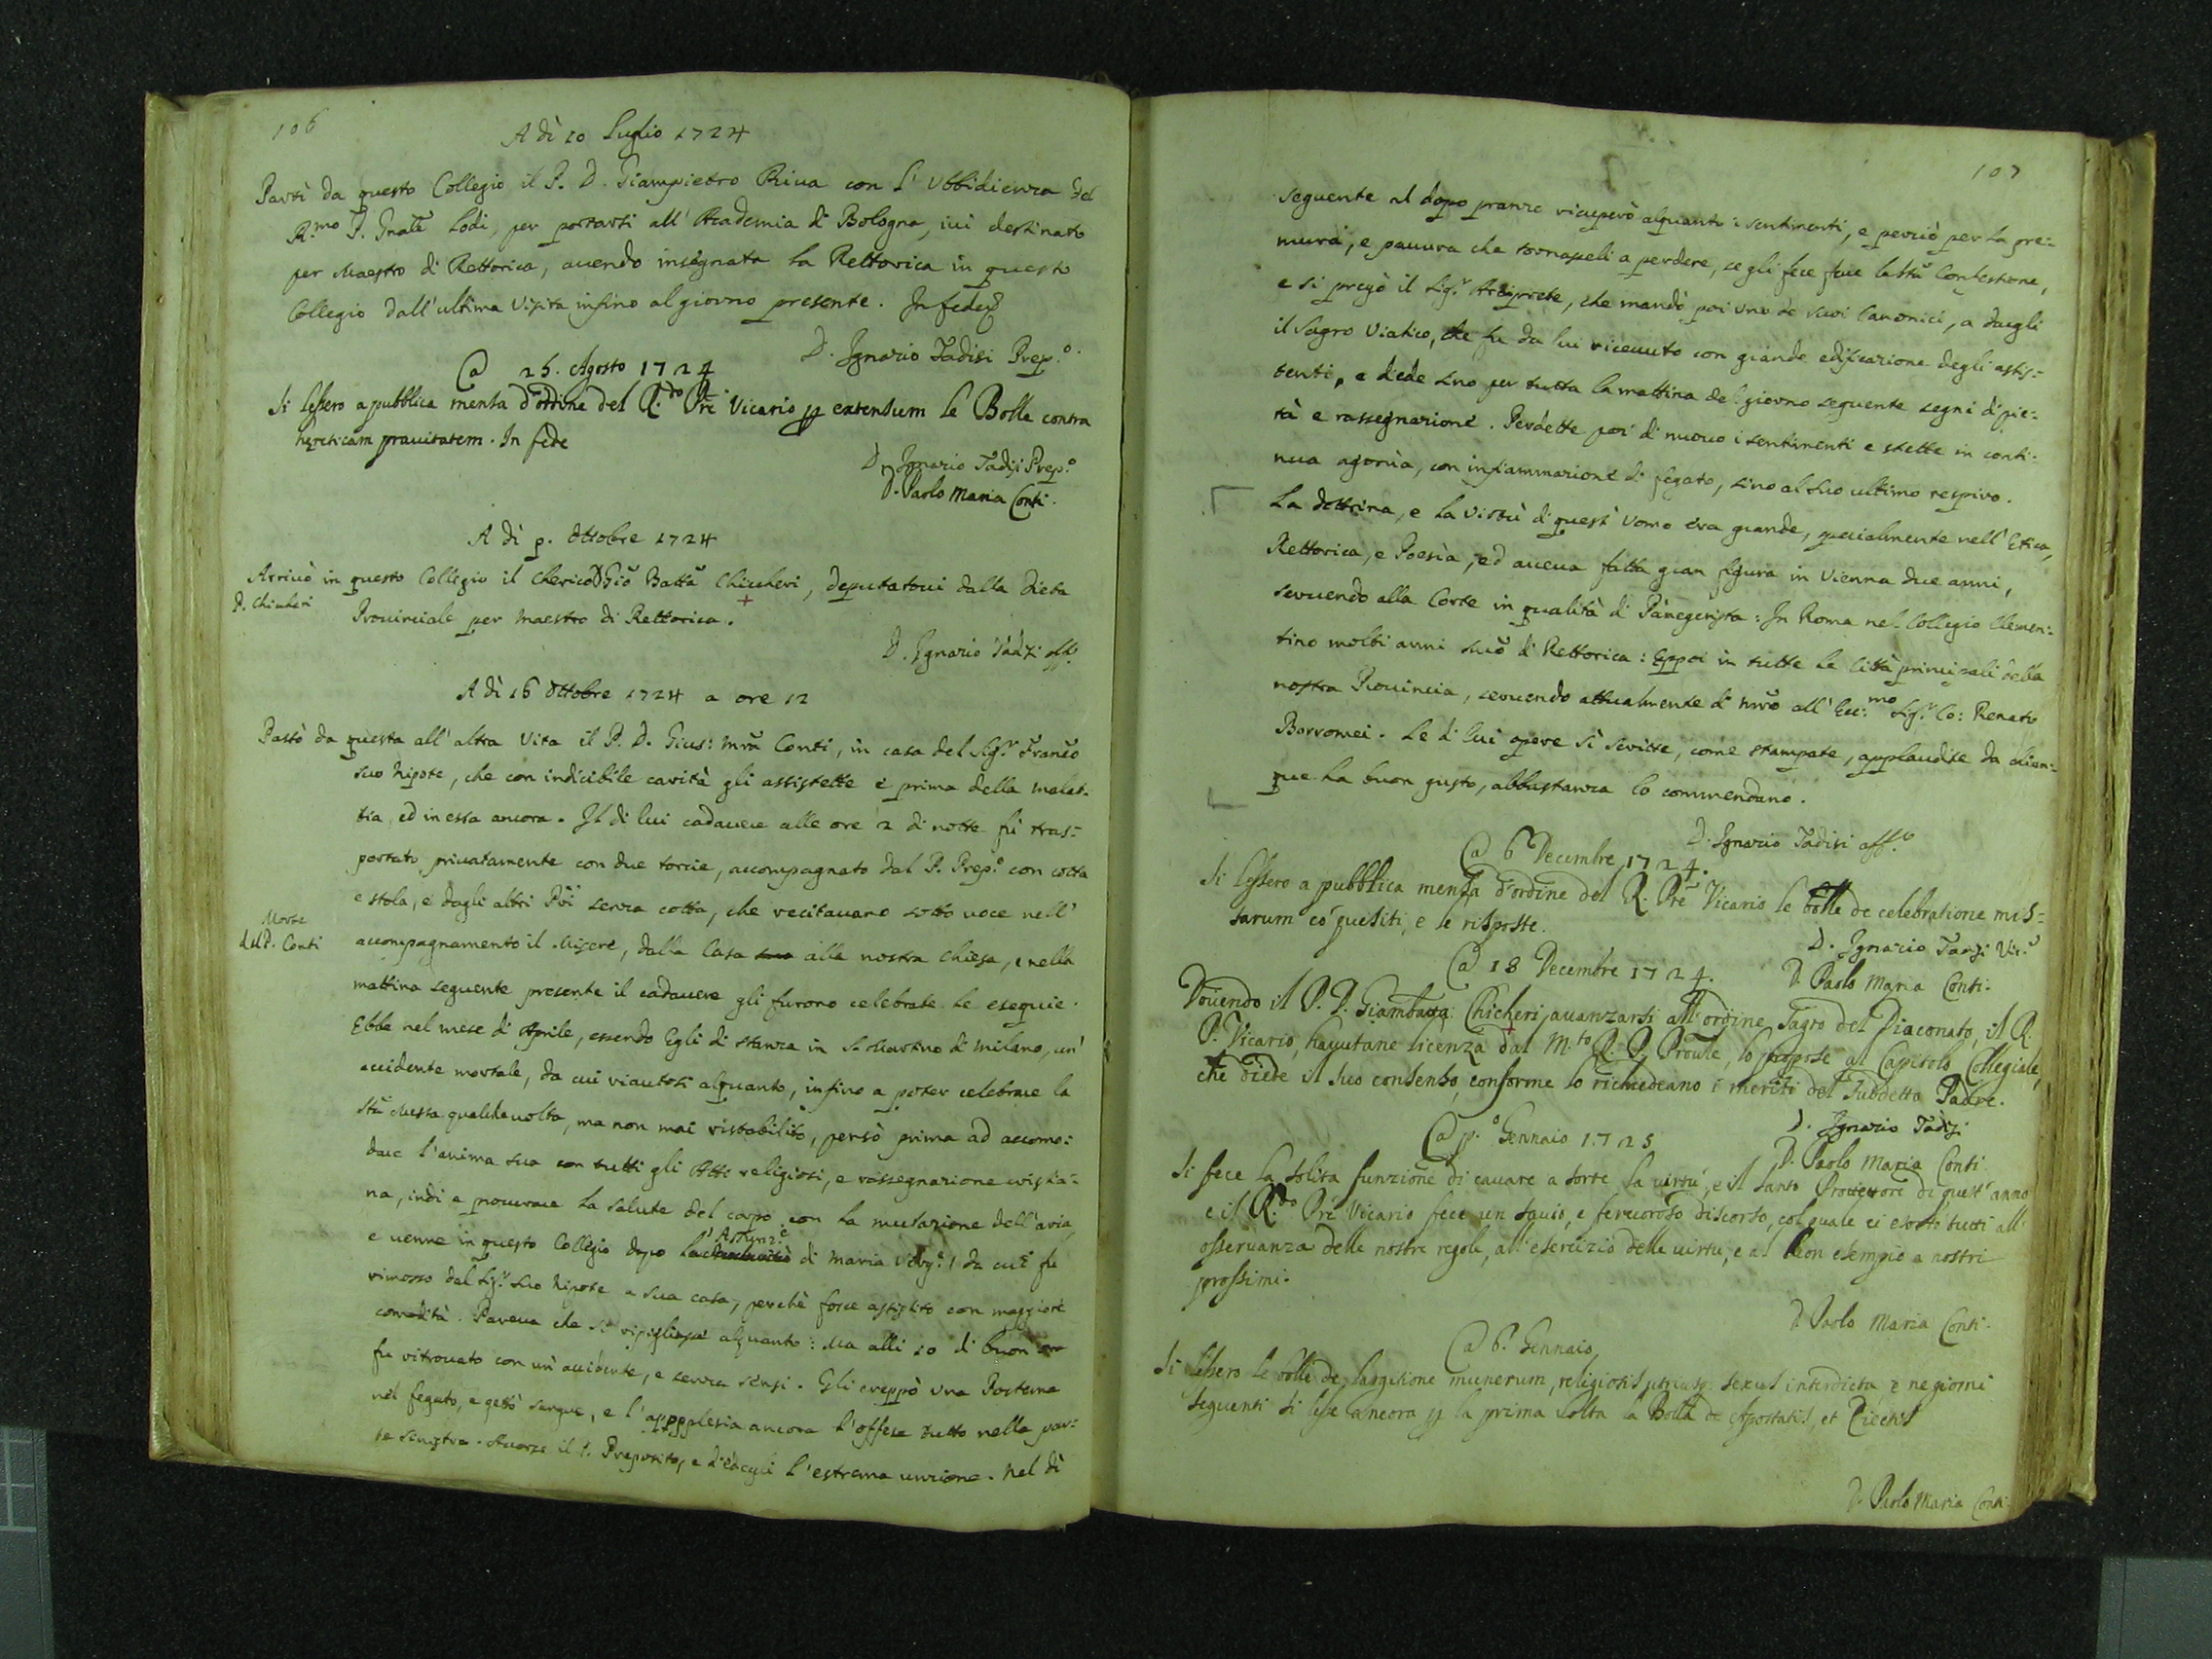 106
A dì 10 Luglio 1724
Partì da questo Collegio il P. D. Giampietro Riva con l'Ubbidienza del
R.mo P. Gnale Lodi, per portarsi all'Academia di Bologna, ivi destinato
per Maestro di Rettorica, avendo insegnata la Rettorica in questo
Collegio dall'ultima Visita infino al giorno presente. In fede
D. Ignazio Tadisi Prep.o
@ 25. Agosto 1724
Si lessero a pubblica mensa d'ordine del R.do Pre Vicario p extensum le Bolle contra
hereticam pravitatem. In fede
D. Ignazio Tadisi Prep.o
D. Paolo Maria Conti.
A dì p. Ottobre 1724
Arrivò in questo Collegio il Cherico D Gio Batta Chicheri, deputatovi dalla Dieta
P. Chicheri
Provinciale per Maestro di Rettorica.
D. Ignazio Tadisi aff.o
A dì 16 Ottobre 1724 a ore 12
Passò da questa all'altra Vita il P. D. Gius: Mra Conti, in casa del Sig.r Franco
suo Nipote, che con indicibile carità gli assistette e prima della malat-
tia, ed in essa ancora. Il di lui cadavere alle ore 2 di notte fù tras-
portato privatamente con due torcie, accompagnato dal P. Prep.o con cotta
e stola, e dagli altri Pri senza cotta, che recitavano sotto voce nell'
Morte
del P. Conti
accompagnamento il Misere, dalla Casa sua alla nostra chiesa, e nella
mattina seguente presente il cadavere gli furono celebrate le esequie.
Ebbe nel mese di Aprile, essendo Egli di stanza in S. Martino di Milano, un'
accidente mortale, da cui riavutosi alquanto, infino a poter celebrare la
Sta Messa qualche volta, ma non mai ristabilito, pensò prima ad accomo-
dare l'anima sua con tutti gli Atti religiosi, e rassegnazione cristia-
na, indi a procurare la salute del corpo con la mutazione dell'aria,
e venne in questo Collegio dopo l'Assunz.e di Maria Verg.e, da cui fu
rimosso dal Sig.r suo Nipote a sua casa, perchè fosse assistito con maggiore
comodità. Pareva che si ripigliasse alquanto: Ma alli 10 di buon ora
fu ritrovato con un'accidente, e senza sensi. Gli creppò una Postema
nel fegato, e gettò sangue, e l'appoplesia ancora l'offese tutto nella par-
te sinistra. Accorse il P. Preposito, e diedegli l'estrema unzione. Nel dì
107
seguente al dopo pranzo ricuperò alquanto i sentimenti, e perciò per la pre-
mura, e pauura che tornasseli a perdere, se gli fece fare la Sta Confessione,
e si pregò il Sig.r Arciprete, che mandò poi uno de suoi Canonici, a dargli
il Sagro Viatico, che fu da lui ricevuto con grande edificazione degli assis-
tenti, e diede sino per tutta la mattina del giorno seguente segni di pie-
tà e rassegnazione. Perdette poi di nuovo i sentimenti e stette in conti-
nua agonia, con infiammazione di fegato, sino al suo ultimo respiro.
La dottrina, e la virtù di quest'Uomo era grande, specialmente nell'Etica,
Rettorica, e Poesia, ed aveva fatta gran figura in Vienna due anni,
servendo alla Corte in qualità di Panegerista: In Roma nel Collegio Clemen-
tino molti anni di Rettorica: Eppoi in tutte le Città principali della
nostra Provincia, servendo attualmente di mro all'Ecc.mo Sig.r Co: Renato
Borromei. Le di lui opere sì scritte, come stampate, applaudite da chiun-
que ha buon gusto, abbastanza lo commendano.
D. Ignazio Tadisi aff.o
@ 6 Decembre 1724.
Si lessero a pubblica mensa d'ordine del R. Pre Vicario le bolle de celebratione mis-
sarum co' quesiti, e le risposte.
D. Ignazio Tadisi Vic.o
D. Paolo Maria Conti.
@ 18 Decembre 1724.
Dovendo il P. D. Giambatta Chicheri avanzarsi all'ordine Sagro del Diaconato, il R.
P. Vicario, havutane licenza dal M.to R. P. Prov.le, lo propose al Capitolo Collegiale,
che diede il suo consenso, conforme lo richiedeano i meriti del Suddetto Padre.
D. Ignazio Tadisi
D. Paolo Maria Conti
@ p.o Gennaio 1725
Si fece la solita funzione di cavare a sorte la virtù, e il Santo Protettore di quest'anno
e il R.do Pre Vicario fece un savio, e fervoroso discorso, col quale ci esortò tutti all'
osservanza delle nostre regole, all'esercizio delle virtù, e al buon esempio a nostri
prossimi.
D. Paolo Maria Conti.
@ 6. Gennaio
Si lessero le bolle de largitione munerum, religiosis utriusq. sexus interdicta e ne giorni
seguenti si lesse ancora p la prima volta la Bolla de Apostatis, et Eiectis
D. Paolo Maria Conti.